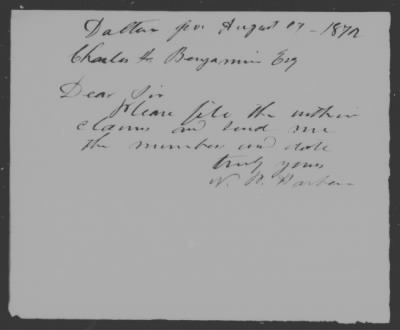 Dalton Ga. August 17 - 1872
Charles H. Benjamin Esq
Dear Sir
Please file the within
claims and send me
the number and date
truly yours
N. B.